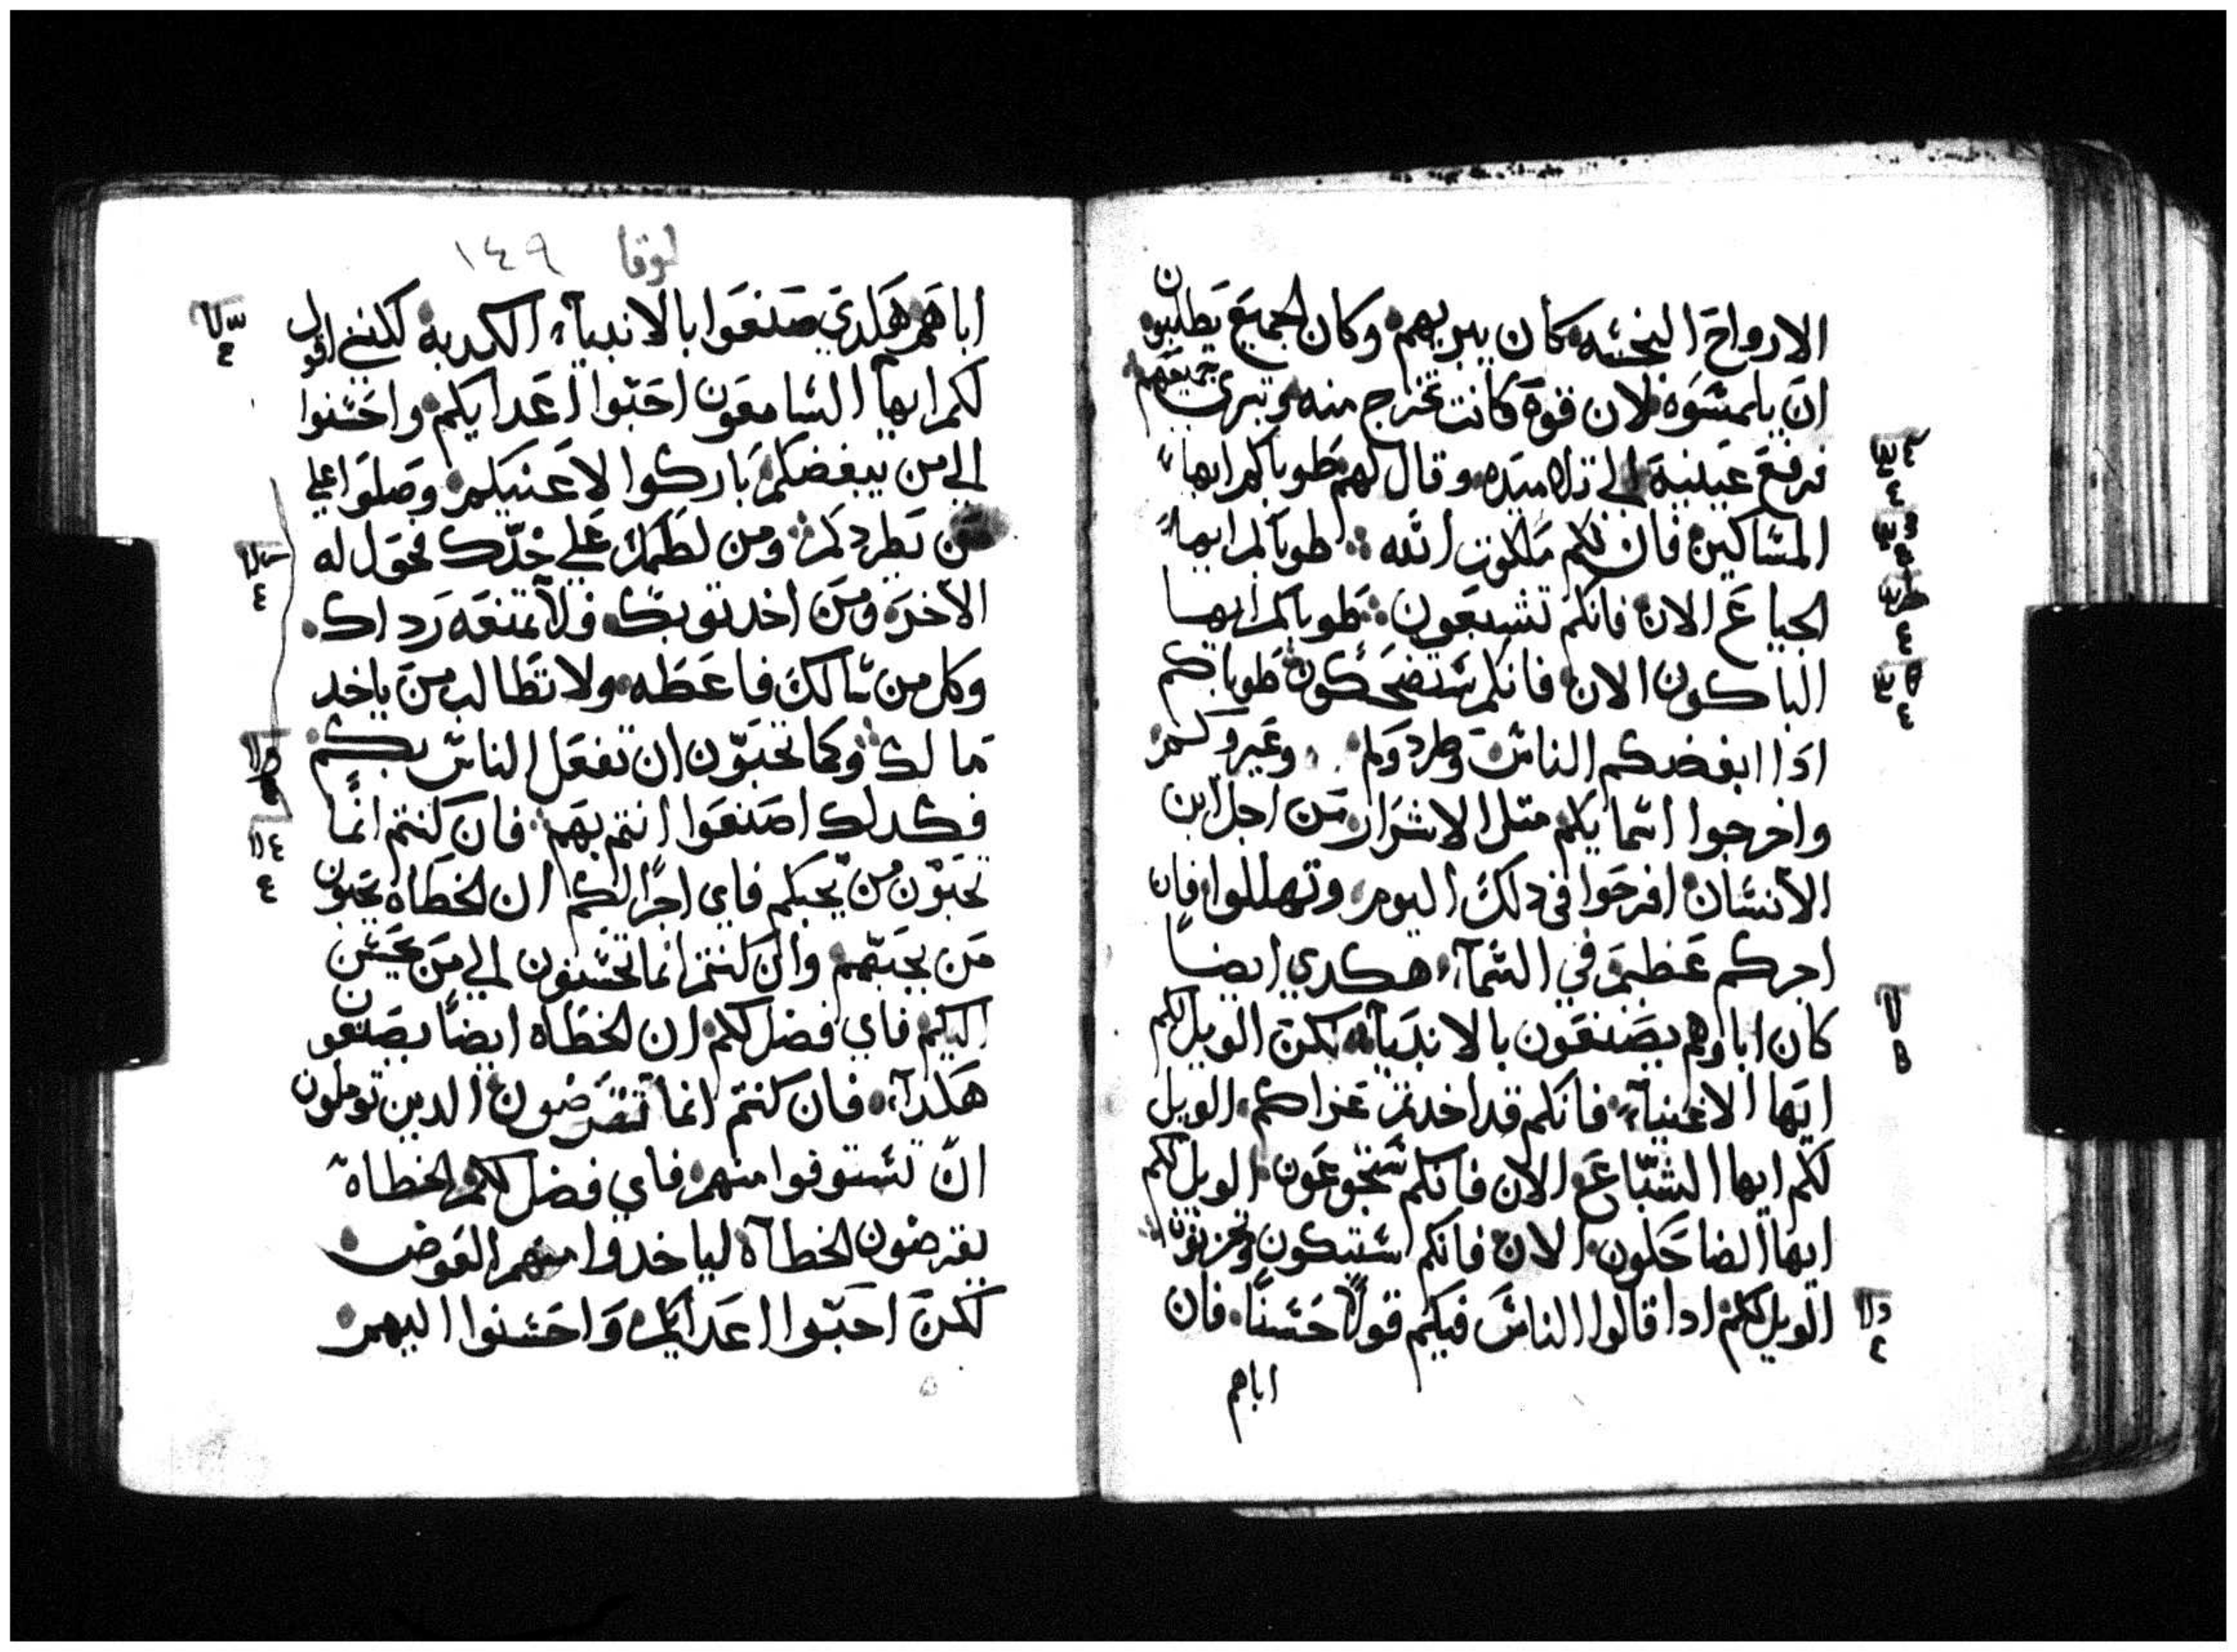 الارواح النجسه كان يبريهم وكان الجميع يطلبون
ان يلمسوه لان قوة كانت تخرج منه وتبري جميعهم
فرفع عينيه الي تلاميده وقال لهم طوباكم ايها
المساكين فان لكم ملكوت الله طوباكم ايها
الجياع الان فانكم تشبعون طوباكم ايها
الباكون الان فانكم ستضحكون طوباكم
ادا ابغضكم الناس وطردوكم وعيروكم
واخرجوا اسمايكم مثل الاشرار من اجل ابن
الانسان افرحوا في دلك اليوم وتهللوا فان
اجركم عظيم في السمآء هكدي ايضا
كان اباوهم يصنعون بالانبيآء لكن الويل لكم
ايها الاغنيآء فانكم قد اخدتم عزاكم الويل
لكم ايها الشباع الان فانكم ستجوعون الويل لكم
ايها الضاحكون الان فانكم ستبكون وتحزنون
الويل لكم ادا قالوا الناس فيكم قولاً حسناً فان
اباهم
لوقا ١٤٩
اباهم هكدي صنعوا بالانبيآء الكدبه لكنني اقول
لكم ايها السامعون احبوا اعدايكم واحسنوا
الي من يبغضكم باركوا لاعنيكم وصلوا علي
من يطردكم ومن لطمك علي خدّك فحول له
الاخر ومن اخد توبك فلا تمنعه رداك
وكل من سالك فاعطه ولا تطالب من ياخد
مالك وكما تحبون ان تفعل الناس بكم
فكدلك اصنعوا انتم بهم فان كنتم انما
تحبون من يحبكم فاي اجرًا لكم ان الخطاه يحبون
من يحبهم وان كنتم انما تحسنون الي من يحسن
اليكم فاي فضل لكم ان الخطاه ايضاً يصنعون
هكدا فان كنتم انما تقرضون الدين توملون
ان تستوفوا منهم فاي فضل لكم والخطاه
يقرضون الخطاه لياخدوا منهم العوض
لكن احبوا اعدايكم واحسنوا اليهم